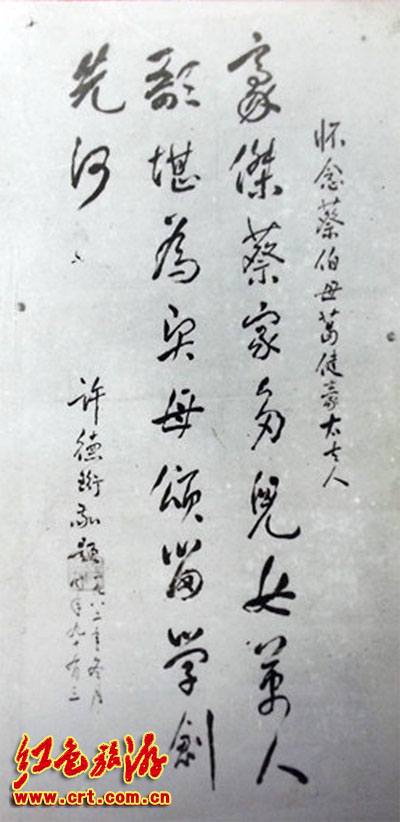 怀念蔡伯母葛健豪太夫人
豪傑蔡家多兒女萬人
歌堪為賢母頌留学創
先河
許德珩敬題
一九八二年冬月
时年九十有三
红色旅游
www.crt.com.cn